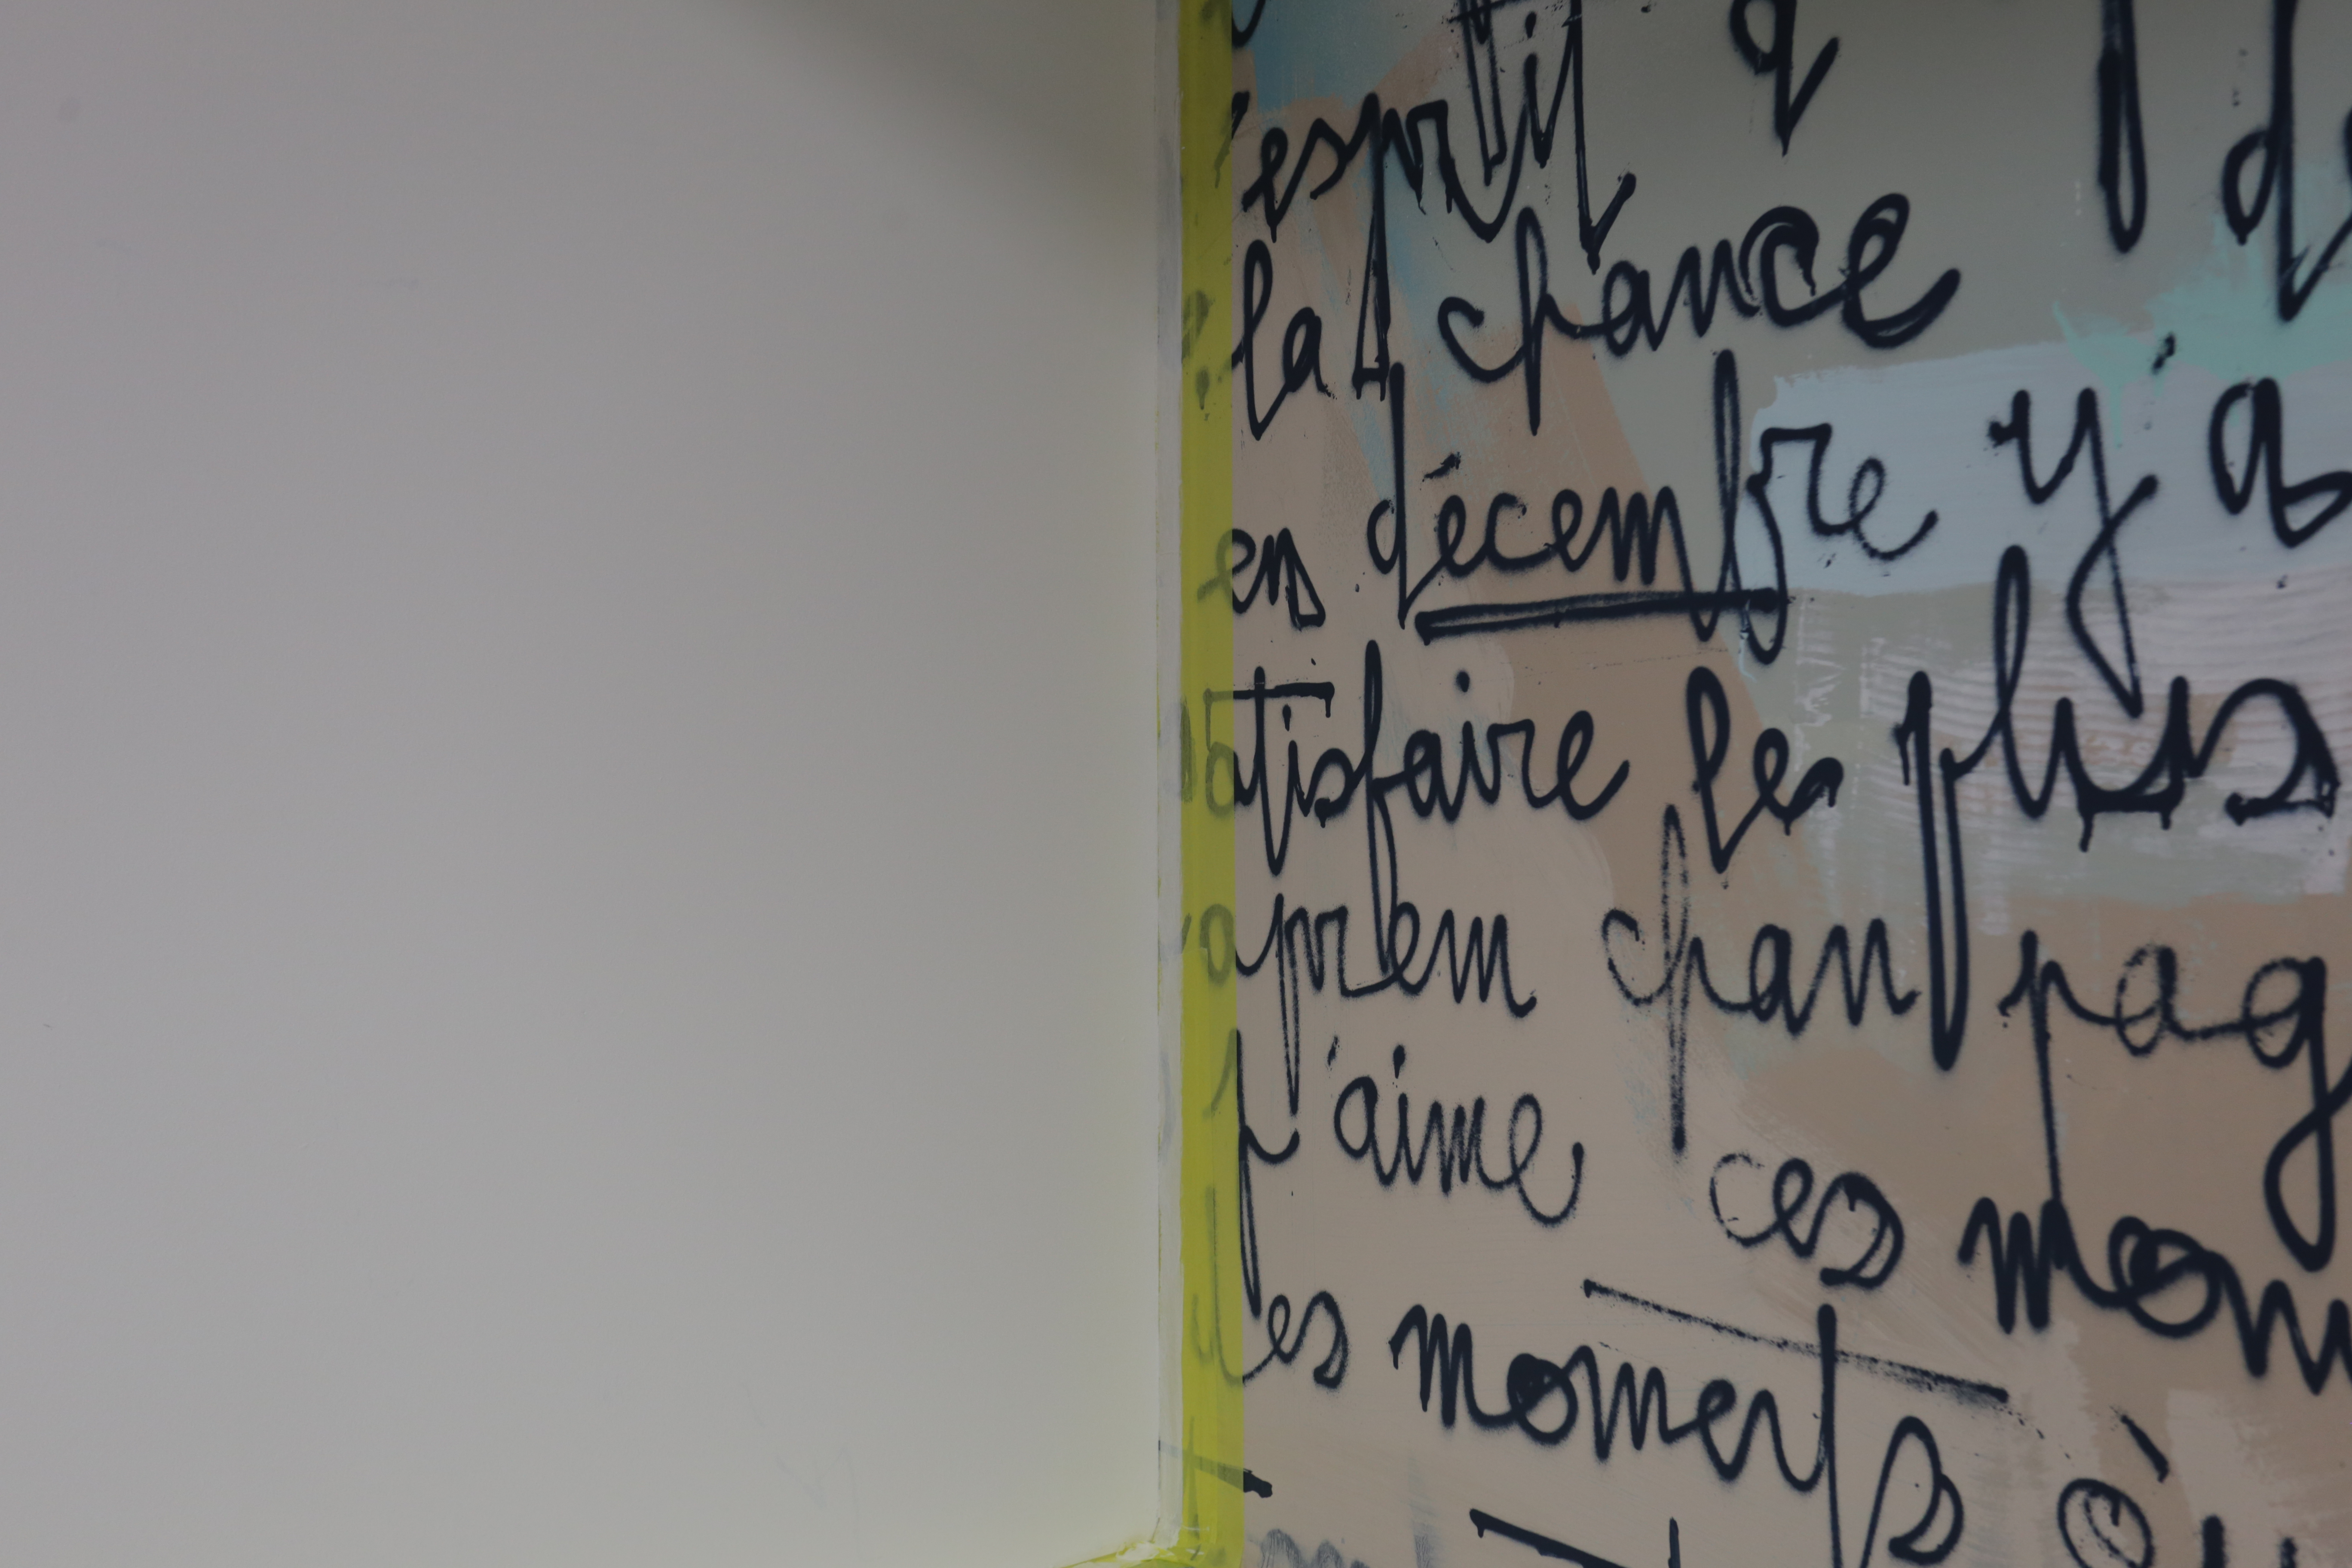 esprit q
la chance
en décembre y'a
atisfaire les plus
aprem chan pag
j'aime ces mom
des moments où